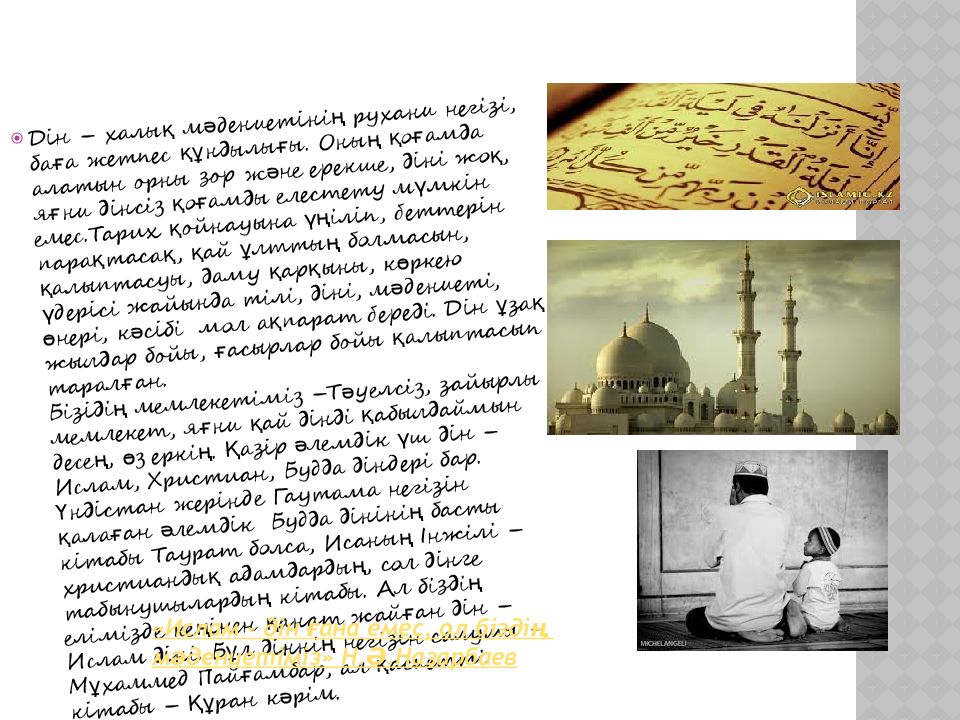 Дін – халық мәдениетінің рухани негізі,
баға жетпес құндылығы. Оның қоғамда
алатын орны зор және ерекше, діні жоқ,
яғни дінсіз қоғамды елестету мүмкін
емес.Тарих қойнауына үңіліп, беттерін
парақтасақ, қай ұлттың болмасын,
қалыптасуы, даму қарқыны, көркею
үдерісі жайында тілі, діні, мәдениеті,
өнері, кәсібі мол ақпарат береді. Дін ұзақ
жылдар бойы, ғасырлар бойы қалыптасып
таралған.
Бізідің мемлекетіміз –Тәуелсіз, зайырлы
мемлекет, яғни қай дінді қабылдаймын
десең, өз еркің. Қазір әлемдік үш дін –
Ислам, Христиан, Будда діндері бар.
Үндістан жерінде Гаутама негізін
қалаған әлемдік Будда дінінің басты
кітабы Таурат болса, Исаның Інжілі –
христиандық адамдардың, сол дінге
табынушылардың кітабы. Ал біздің
елімізде кеңінен қанат жайған дін –
Ислам діні. Бұл діннің негізін салушы
Мұхаммед Пайғамбар, ал қасиетті
кітабы – Құран кәрім.
«Ислам – дін ғана емес, ол біздің
мәдениетіміз» Н.Ә.Назарбаев
إِنَّا أَنزَلْنَاهُ فِي لَيْلَةِ
الْقَدْرِ خَيْرٌ مِّنْ أَلْفِ
رَبِّهِم مِّن كُلِّ
ISLAMIC.KZ
MICHELANGELI